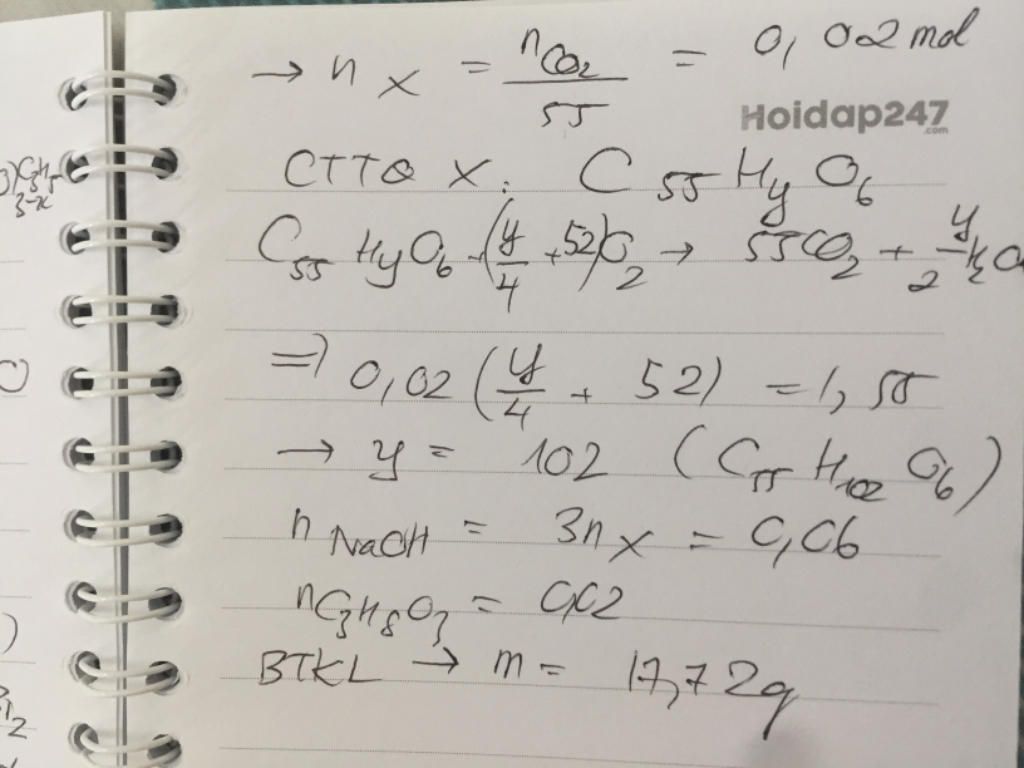 → n X = nCO2 / 55 = 0,02 mol
Hoidap247
.com
CTTQ X: C55HyO6
C55HyO6 + (y/4 + 52)O2 → 55CO2 + y/2 H2O
=> 0,02 (y/4 + 52) = 1,55
→ y = 102 (C55H102O6)
n NaOH = 3n X = 0,06
nC3H8O3 = 0,02
BTKL → m = 17,72g